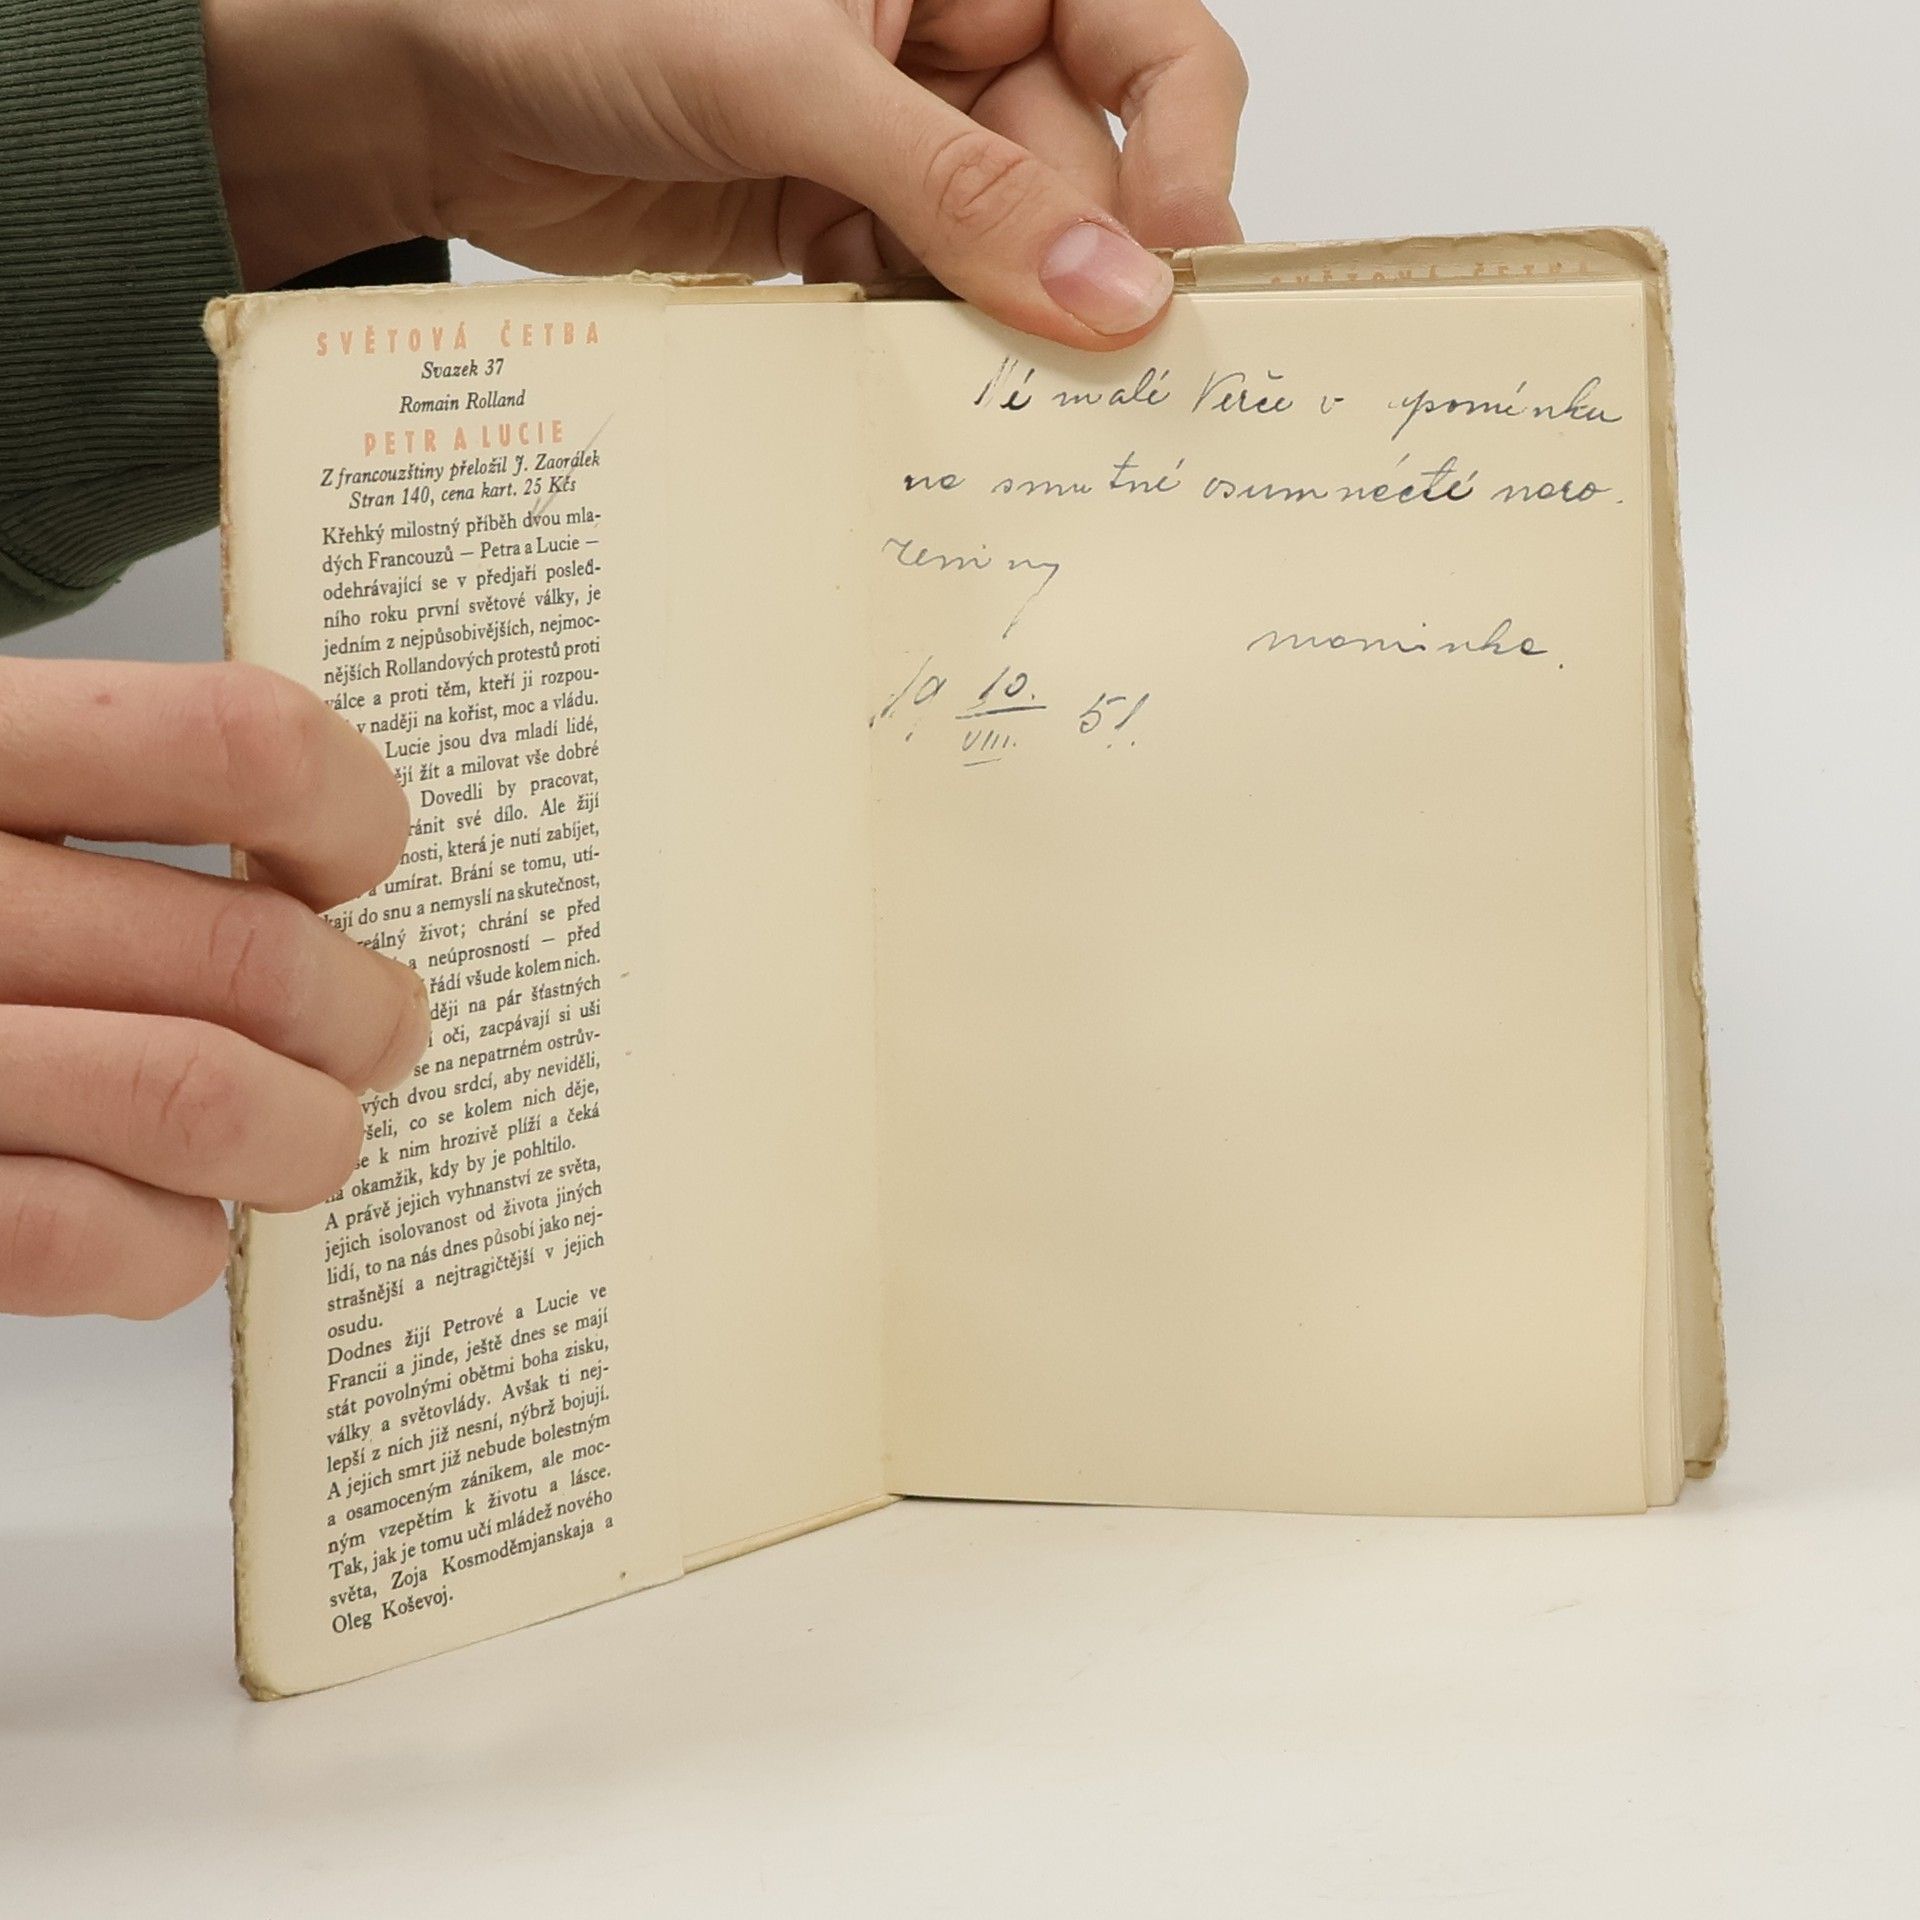 SVĚTOVÁ ČETBA
Svazek 37
Romain Rolland
PETR A LUCIE
Z francouzštiny přeložil J. Zaorálek
Stran 140, cena kart. 25 Kčs
Křehký milostný příběh dvou mla-
dých Francouzů — Petra a Lucie —
odehrávající se v předjaří posled-
ního roku první světové války, je
jedním z nejpůsobivějších, nejmoc-
nějších Rollandových protestů proti
válce a proti těm, kteří ji rozpou-
v naději na kořist, moc a vládu.
Lucie jsou dva mladí lidé,
ějí žít a milovat vše dobré
Dovedli by pracovat,
ránit své dílo. Ale žijí
nosti, která je nutí zabíjet,
a umírat. Brání se tomu, utí-
kají do snu a nemyslí na skutečnost,
reálný život; chrání se před
a neúprosností — před
řádí všude kolem nich.
ději na pár šťastných
í oči, zacpávají si uši
se na nepatrném ostrův-
vých dvou srdcí, aby neviděli,
šeli, co se kolem nich děje,
se k nim hrozivě plíží a čeká
na okamžik, kdy by je pohltilo.
A právě jejich vyhnanství ze světa,
jejich isolovanost od života jiných
lidí, to na nás dnes působí jako nej-
strašnější a nejtragičtější v jejich
osudu.
Dodnes žijí Petrové a Lucie ve
Francii a jinde, ještě dnes se mají
stát povolnými obětmi boha zisku,
války a světovlády. Avšak ti nej-
lepší z nich již nesní, nýbrž bojují.
A jejich smrt již nebude bolestným
a osamoceným zánikem, ale moc-
ným vzepětím k životu a lásce.
Tak, jak je tomu učí mládež nového
světa, Zoja Kosmoděmjanskaja a
Oleg Koševoj.
SVĚTOVÁ ČETBA
malé Verče v upomínku
na smutné osumnácté naro.
zeniny
maminka.
19 10. VIII. 51.